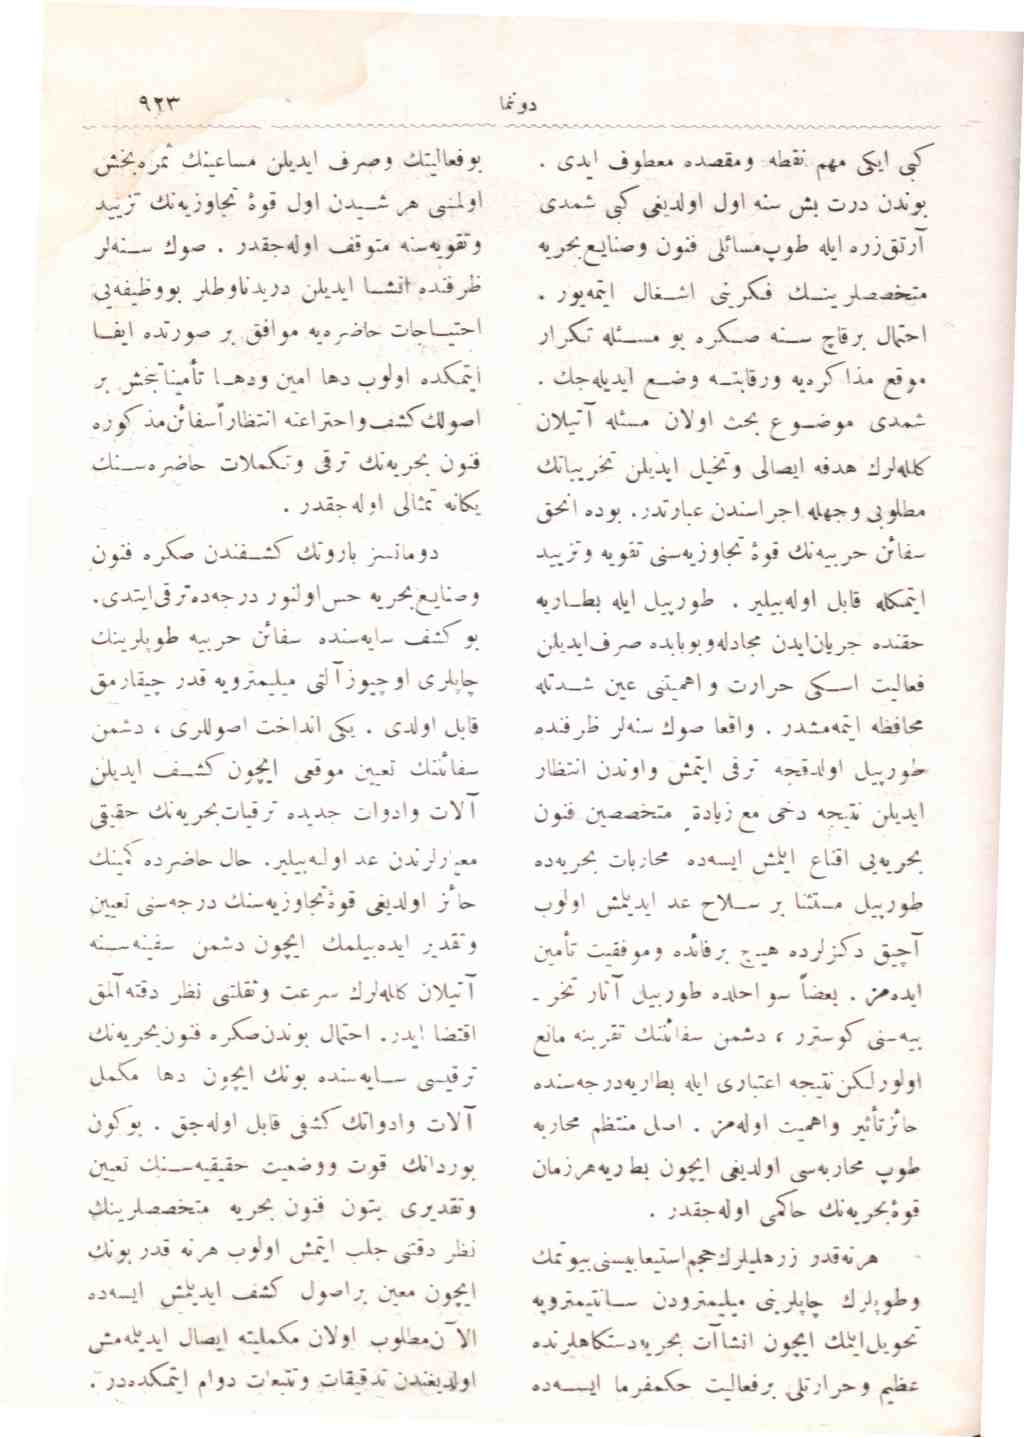 دوننما
٩٢٣
كبی ایكی مهم نقطه ومقصده معطوف ایدی .
بوندن درت بش سنه اول اولدیغی كبی شمدی
آرتق زره ایله طوپ مسائلی فنون وصنایع بحریه
متخصصلرینك فكرینی اشغال ایتمه‌یور .
احتمال برقاچ سنه صكره بو مسئله تكرار
موقع مذاكره‌یه ورقابته وضع ایدیله‌جك .
شمدی موضوع بحث اولان مسئله آتیلان
كلله‌لرك هدفه ایصالی وتخیل ایدیلن تخریباتك
مطلوبی وجهله اجراسندن عبارتدر. بوده انجق
سفائن حربیه‌نك قوهٔ تجاوزیه‌سنی تقویه وتزیید
ایتمكله قابل اوله‌بیلیر . طورپیل ایله بطاریه
حقنده جریان ایدن مجادله وبوبابده صرف ایدیلن
فعالیت اسكی حرارت واهمیتنی عین شدتله
محافظه ایتمه‌مشدر . واقعا صوك سنه‌لر ظرفنده
طورپیل اولدقجه ترقی ایتمش واوندن انتظار
ایدیلن نتیجه دخی مع زیادة متخصصین فنون
بحریه‌یی اقناع ایلمش ایسه‌ده محاربات بحریه‌ده
طورپیل مستثنا بر سلاح عد ایدیلمش اولوب
آچیق دكزلرده هیچ برفائده وموفقیت تأمین
ایده‌مز . بعضاً سواحلده طورپیل آثار تخر ـ
یبیه‌سنی كوسترر ، دشمن سفائننك تقربنه مانع
اولور لكن نتیجه اعتباری ایله بطاریه درجه‌سنده
حائز تأثیر واهمیت اوله‌مز . اصل منتظم محاربه
طوپ محاربه‌سی اولدیغی ایچون بطاریه هر زمان
قوهٔ بحریه‌نك حاكمی اوله‌جقدر .
هر نه‌قدر زرهلیلرك حجم استیعابیسنی بیوتمك
وطوپلرك چاپلرینی میلیمترودن سانتیمترویه
تحویل ایلمك ایچون انشاآت بحریه دستكاهلرنده
عظیم وحرارتلی برفعالیت حكمفرما ایسه‌ده
بوفعالیتك وصرف ایدیلن مساعینك ثمره‌بخش
اولمسی هر شیدن اول قوهٔ تجاوزیه‌نك تزیید
وتقویه‌سنه متوقف اوله‌جقدر . صوك سنه‌لر
ظرفنده انشا ایدیلن دریدناوطلر بووظیفه‌یی
احتیاجات حاضره‌یه موافق بر صورتده ایفا
ایتمكده اولوب دها امین ودها تأمیناتبخش بر
اصولك كشف واختراعنه انتظاراً سفائن مذكوره
فنون بحریه‌نك ترقی وتكملات حاضره‌سنك
یكانه تمثالی اوله‌جقدر .
دومانسز باروتك كشفندن صكره فنون
وصنایع بحریه حس اولنور درجه‌ده ترقی ایتدی.
بو كشف سایه‌سنده سفائن حربیه طوپلرینك
چاپلری اوچیوز آلتی میلیمترویه قدر چیقارمق
قابل اولدی . یكی انداخت اصوللری ، دشمن
سفائننك تعیین موقعی ایچون كشف ایدیلن
آلات وادوات جدیده ترقیات بحریه‌نك حقیقی
معیارلرندن عد اولنه‌بیلیر. حال حاضرده كمینك
حائز اولدیغی قوهٔ تجاوزیه‌سنك درجه‌سنی تعیین
وتقدیر ایده‌بیلمك ایچون دشمن سفینه‌سنه
آتیلان كلله‌لرك سرعت وثقلتنی نظر دقته آلمق
اقتضا ایدر. احتمال بوندن صكره فنون بحریه‌نك
ترقیسی سایه‌سنده بونك ایچون دها مكمل
آلات وادواتك كشفی قابل اوله‌جق . بوكون
بوردانك قوت ووضعیت حقیقیه‌سنك تعیین
وتقدیری بتون فنون بحریه متخصصلرینك
نظر دقتنی جلب ایتمش اولوب هر نه قدر بونك
ایچون معین براصول كشف ایدیلمش ایسه‌ده
الآن مطلوب اولان مكملیته ایصال ایدیله‌مش
اولدیغندن تدقیقات وتتبعات دوام ایتمكده‌در .